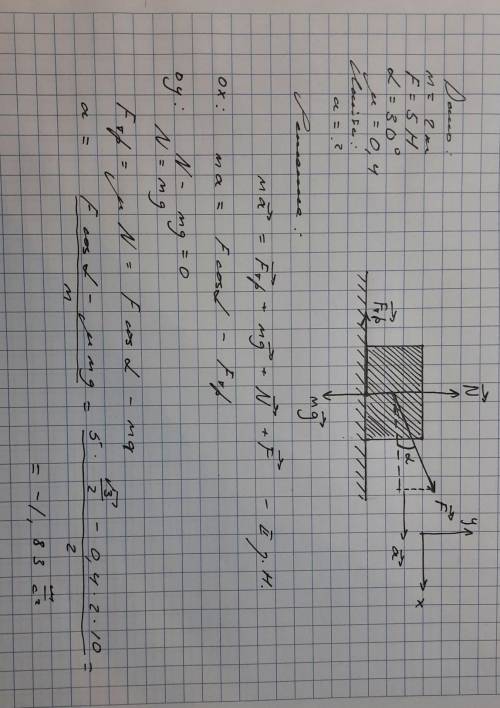 Дано:
m = 2 кг
F = 5 Н
α = 30°
μ = 0,4
Найти:
a = ?
N⃗
F⃗
α
a⃗
F⃗тр
mg⃗
y
x
Решение:
ma⃗ = F⃗тр + mg⃗ + N⃗ + F⃗ - II з.Н.
ox: ma = Fcosα - Fтр
oy: N - mg = 0
N = mg
Fтр = μN = Fcosα - mg
a = (Fcosα - μmg)/m = (5·√3/2 - 0,4·2·10)/2 =
= -1,83 м/с²